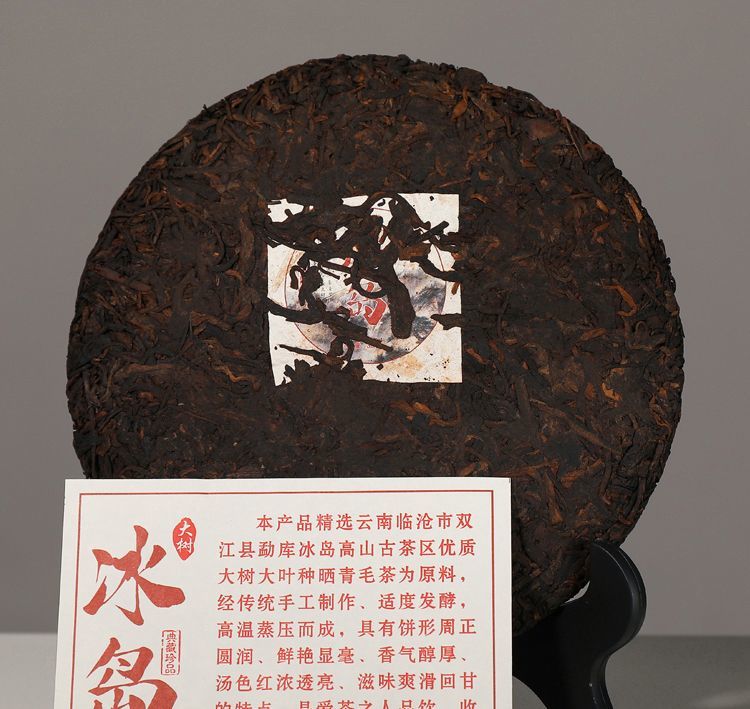 岛
大树
冰岛
典藏珍品
本产品精选云南临沧市双
江县勐库冰岛高山古茶区优质
大树大叶种晒青毛茶为原料，
经传统手工制作、适度发酵，
高温蒸压而成，具有饼形周正
圆润、鲜艳显毫、香气醇厚、
汤色红浓透亮、滋味爽滑回甘
的特点，是爱茶之人品饮、收